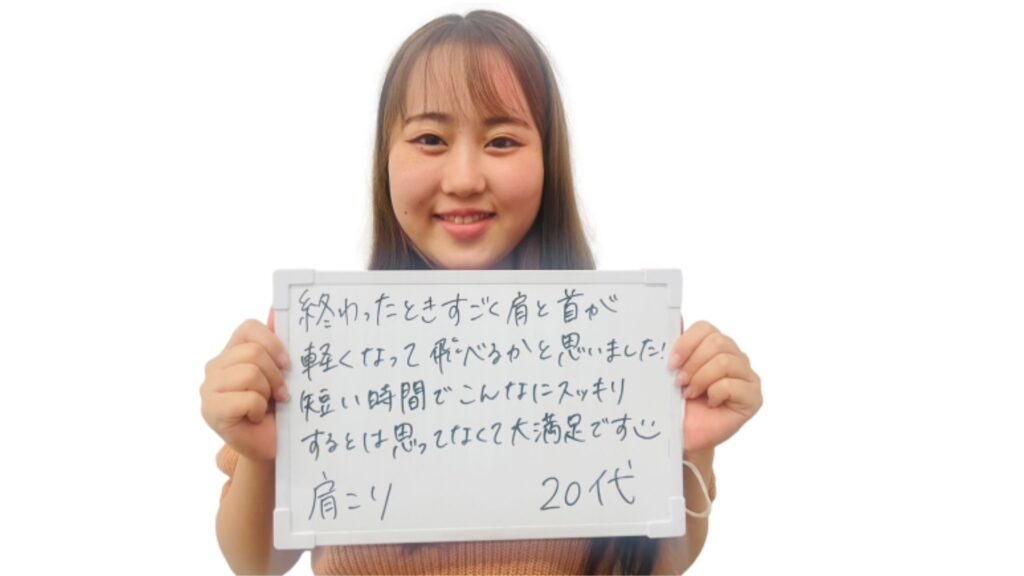 終わったときすごく肩と首が
軽くなって飛べるかと思いました!
短い時間でこんなにスッキリ
するとは思ってなくて大満足です
肩こり 20代